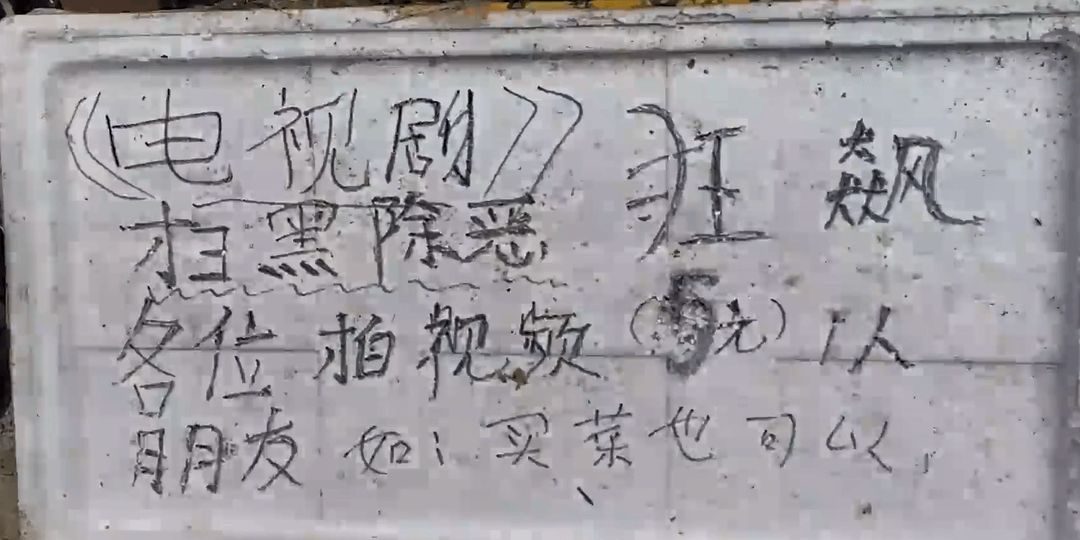 《电视剧》 狂飙
扫黑除恶
各位 拍视频（5元）1人
朋友 如: 买菜也可以,